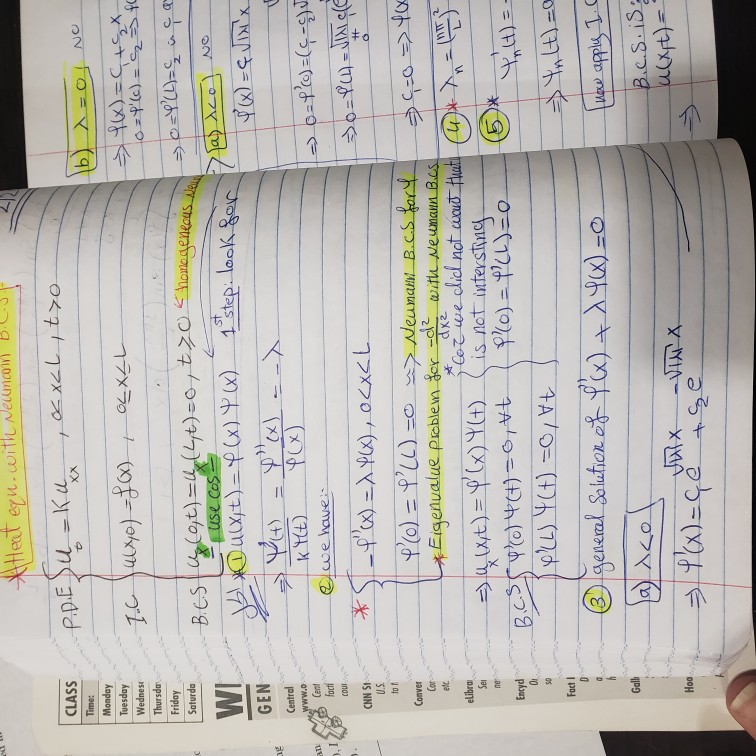 *Heat equ. with Neumann B.C.S
P.D.E { u_t = K u_xx , 0<x<L , t>0
I.C { u(x,0)=f(x) , 0≤x≤L
B.C.S { u_x(0,t)=u_x(L,t)=0 , t>0 ← homogeneous
= use cos =
* ① u(x,t)=φ(x)Ψ(t) 1st step: look for
⇒ Ψ'(t)/KΨ(t) = φ''(x)/φ(x) = -λ
② we have:-
* { -φ''(x)=λφ(x) , 0<x<L
φ'(0)=φ'(L)=0 ~> Neumann B.C.S for φ
* Eigenvalue problem for -d²/dx² with Neumann B.C.S
⇒ u_x(x,t)=φ'(x)Ψ(t) * coz we did not want that
is not intersting
B.C.S { φ'(0)Ψ(t)=0, ∀t } φ'(0)=φ'(L)=0
φ'(L)Ψ(t)=0, ∀t
③ general solution of φ''(x)+λφ(x)=0
a) λ<0
⇒ φ(x)=c₁e^√|λ|x + c₂e^-√|λ|x
b) λ=0 NO
⇒ φ(x)=c₁+c₂x
0=φ'(0)=c₂ ⇒
⇒ 0=φ'(L)=c₂
⇒ a) λ<0 NO
φ'(x)=c₁√|λ|
⇒ 0=φ'(0)=(c₁-c₂)
⇒ 0=φ'(L)=√|λ| c₁(
≠0
⇒ c₁=0 ⇒
④ * λ_n = (nπ/L)²
⑤ * Ψ_n'(t)=-
⇒ Ψ_n(t)=
now apply I.C
B.C.S. is:
u(x,t)=
⇒
CLASS
Time:
Monday
Tuesday
Wednes
Thursda
Friday
Saturda
GEN
Central
www.o
CNN St
U.S.
to
Conver
etc.
eLibra
Encycl
so
Fact
Gall
Hoo